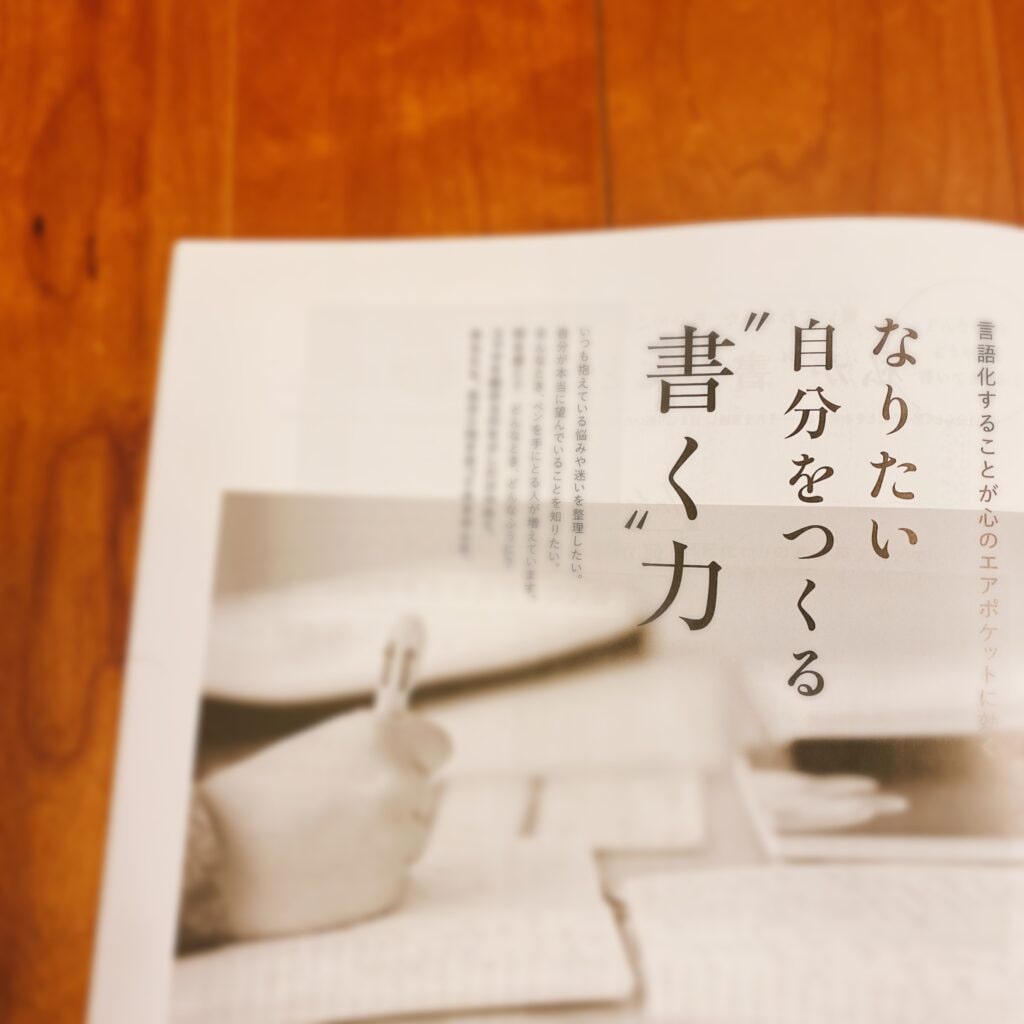 言語化することが心のエアポケットに効く
なりたい
自分をつくる
〝書く〟力
いつも抱えている悩みや迷いを整理したい。
自分が本当に望んでいることを知りたい。
そんなとき、ペンを手にとる人が増えています。